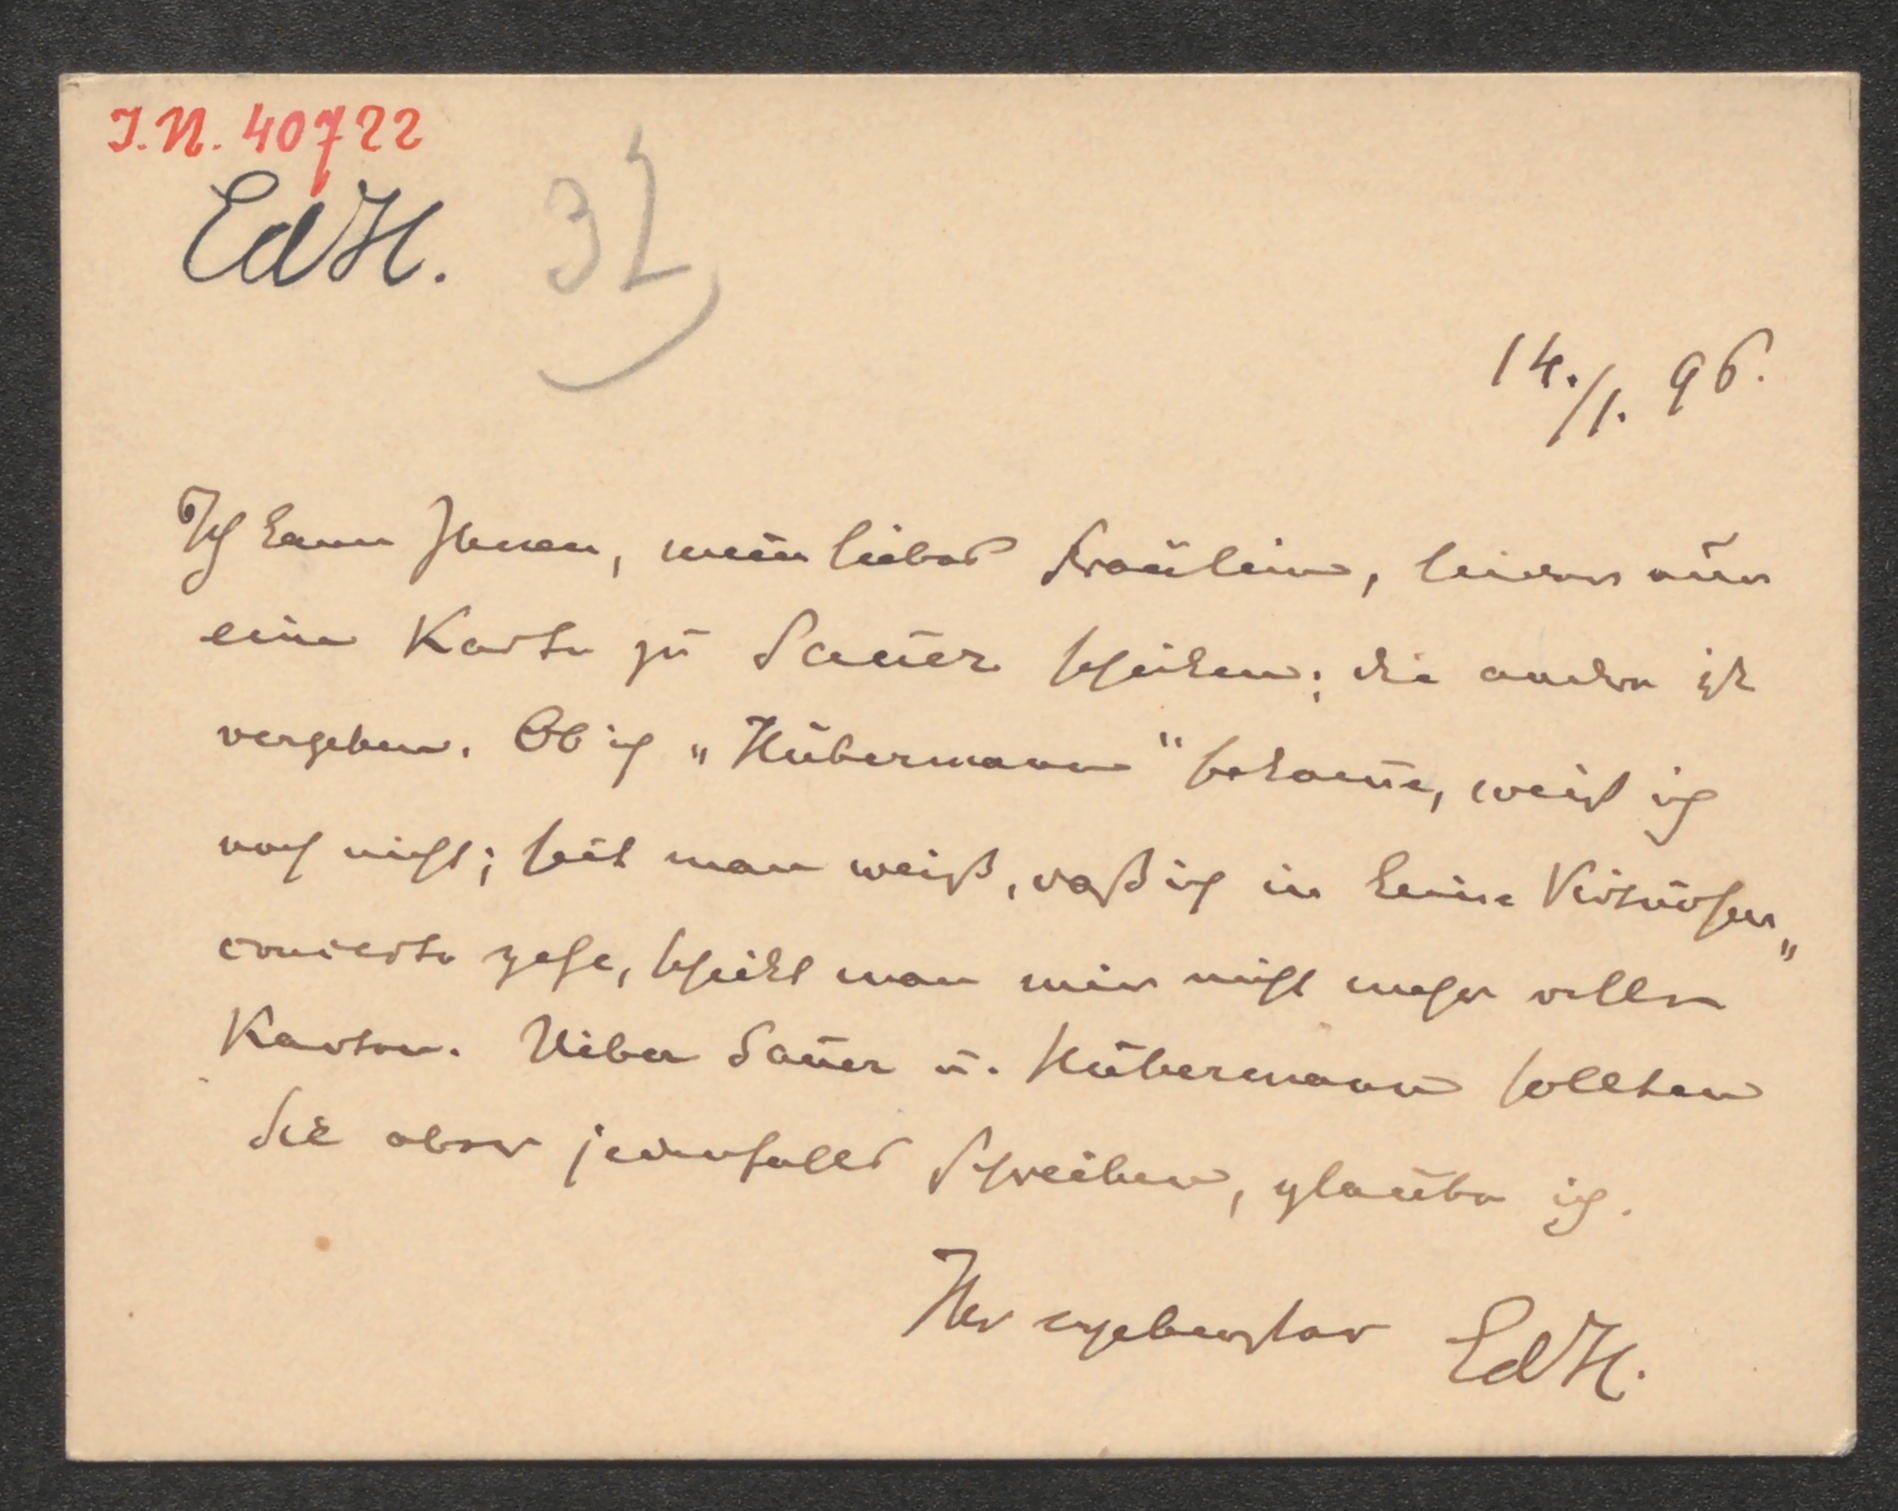 I.N. 40722
EdH. 32
14./1. 96.
Ich kann Ihnen, mein liebes Fräulein, leider nur
eine Karte zu Sauer schicken; die andere ist
vergeben. Ob ich „Hubermann“ bekomme, weiß ich
noch nicht; seit man weiß, daß ich in keine Virtuosen„
concerte gehe, schickt man mir nicht mehr
Karten. Ueber Sauer u. Hubermann sollten
Sie aber jedenfalls Schreiben, glaube ich.
Ihr ergebenster EdH.